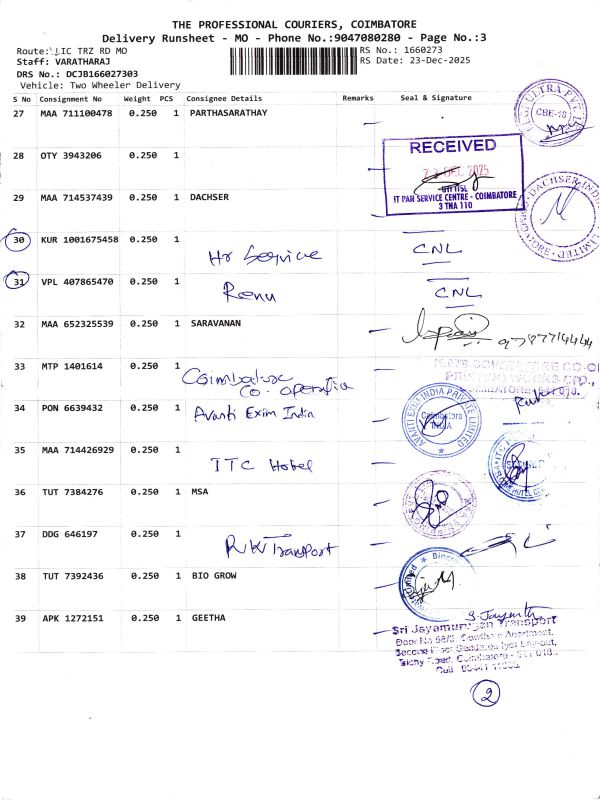 THE PROFESSIONAL COURIERS, COIMBATORE
Delivery Runsheet - MO - Phone No.:9047080280 - Page No.:3
Route: LIC TRZ RD MO
RS No.: 1660273
Staff: VARATHARAJ
RS Date: 23-Dec-2025
DRS No.: DCJB166027303
Vehicle: Two Wheeler Delivery
S No Consignment No Weight PCS Consignee Details Remarks Seal & Signature
27 MAA 711100478 0.250 1 PARTHASARATHAY
CBE-18
28 OTY 3943206 0.250 1
RECEIVED
DEC 2025
UTIITSL
IT PAN SERVICE CENTRE - COIMBATORE
3 TNA 110
29 MAA 714537439 0.250 1 DACHSER
DACHSER INDIA
LIMITED
30 KUR 1001675458 0.250 1
Hr Service CNL
31 VPL 407865470 0.250 1
Renu CNL
32 MAA 652325539 0.250 1 SARAVANAN
33 MTP 1401614 0.250 1
Coimbatore
Co. operative
34 PON 6639432 0.250 1 Avanti Exim India
AVANTI EXIM INDIA PRIVATE LIMITED
Coimbatore
INDIA
35 MAA 714426929 0.250 1
ITC Hotel
36 TUT 7384276 0.250 1 MSA
37 DDG 646197 0.250 1
RK Transport
38 TUT 7392436 0.250 1 BIO GROW
39 APK 1272151 0.250 1 GEETHA
S. Jayanthi
Sri Jayamurugan Transport
Coimbatore
2